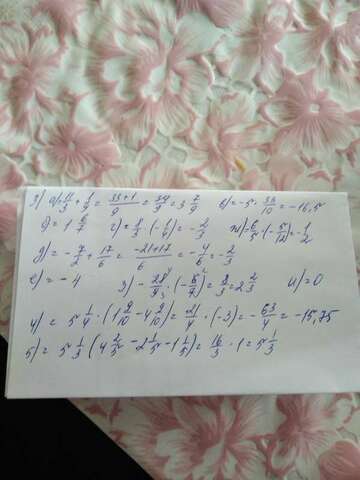 3) а) = 11/3 + 1/9 = (33+1)/9 = 34/9 = 3 7/9 в) = -5 · 33/10 = -16,5
б) = 1 6/7 г) = 8/3 · (-1/4) = -2/3 ж) = 6/5 · (-5/12) = -1/2
д) = -7/2 + 17/6 = (-21+17)/6 = -4/6 = -2/3
е) = -4 з) -28/9 · (-6/7) = 8/3 = 2 2/3 и) = 0
4) = 5 1/4 · (1 2/10 - 4 2/10) = 21/4 · (-3) = -63/4 = -15,75
5) = 5 1/3 (4 2/5 - 2 1/5 - 1 1/5) = 16/3 · 1 = 5 1/3